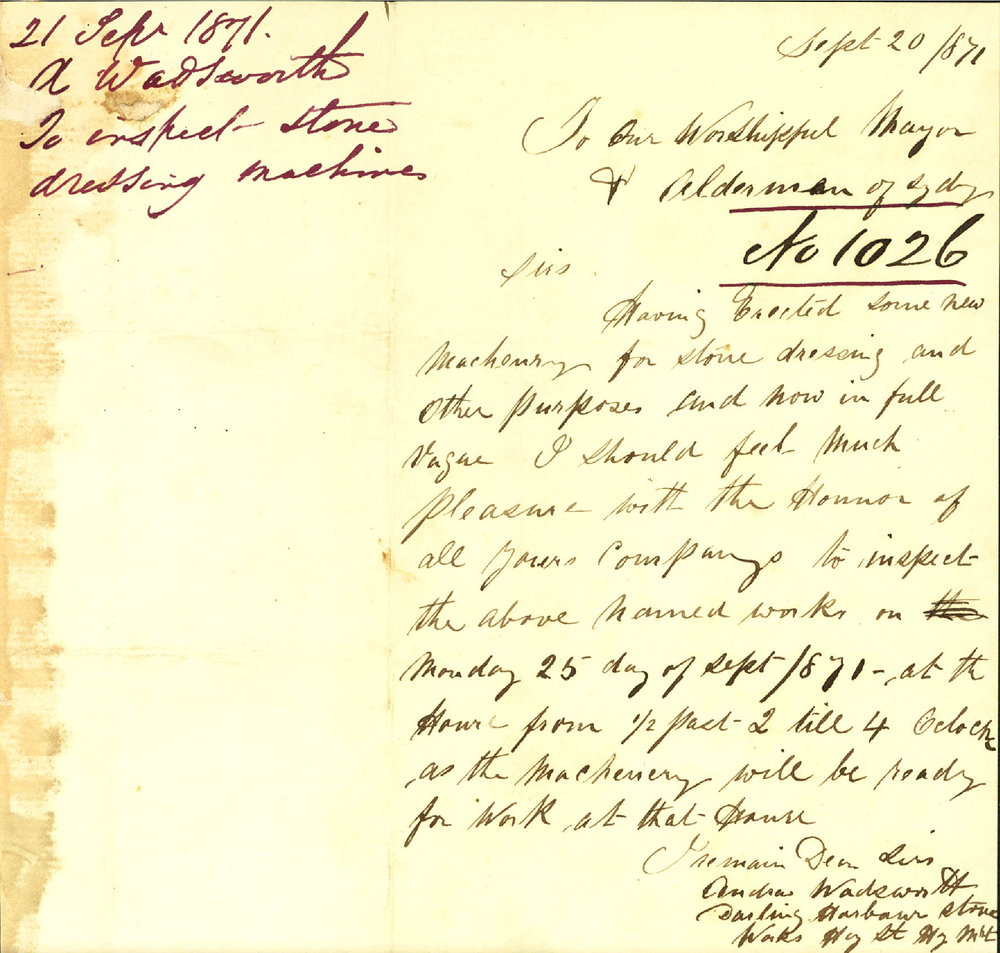 21 Sepr 1871.
A Wadsworth
To inspect stone
dressing machines
Sept 20 /871
To Our Worshipful Mayor
& Alderman of Sydy
No 1026
Sirs
Having Erected some new
Machenry for stone dressing and
Other purposes and now in full
Vague I should feel Much
pleasure with the Honnor of
all Yours Companys to inspect
the above Named works on the
Monday 25 day of Sept /871 - at the
Houre from 1/2 past 2 till 4 Oclock
as the Machenery will be ready
for Work at that House
I remain Dear Sirs
Andrew Wadsworth
Darling Harbour Stone
Works Hay St Hy Mkt